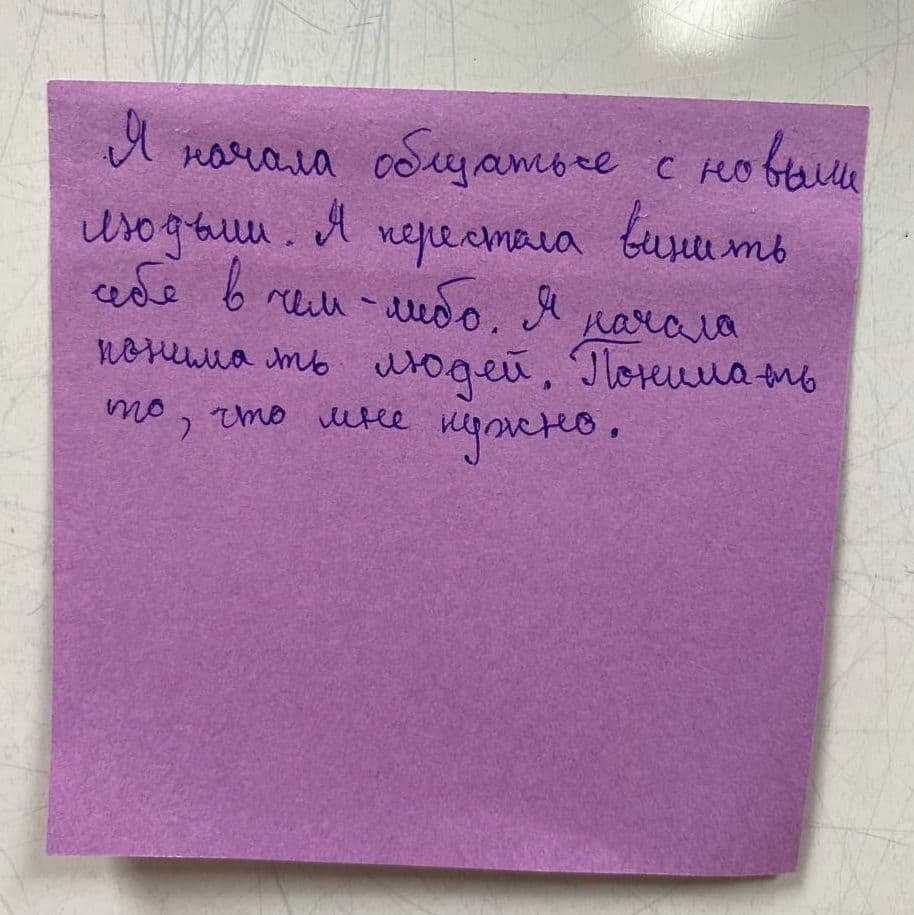 Я начала общаться с новыми
людьми. Я перестала винить
себя в чем-либо. Я начала
понимать людей. Понимать
то, что мне нужно.